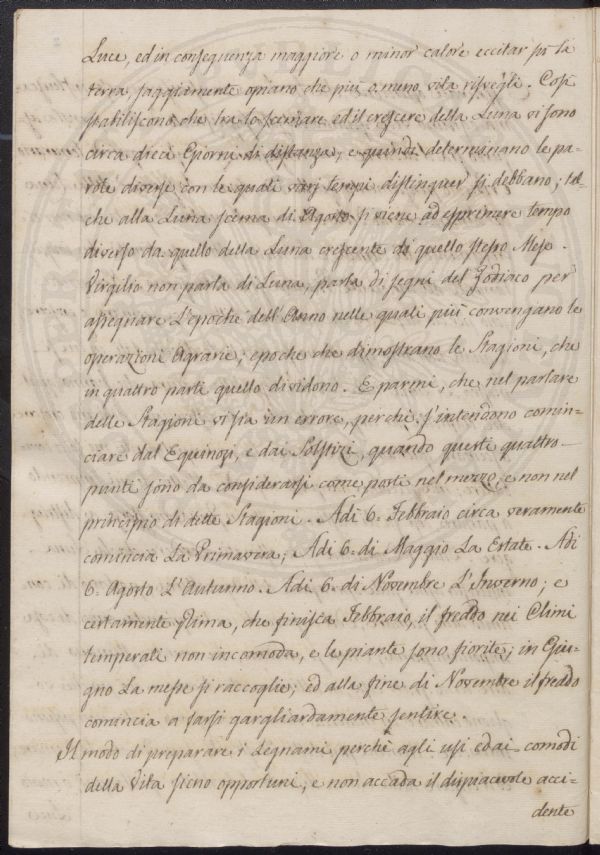 Luce, ed in conseguenza maggiore o minor calore eccitar su la
terra, saggiamente opiano che più o meno vita risvegli. Così
stabiliscono, che tra lo scemare ed il crescere della Luna vi sono
circa dieci Giorni di distanza, e quindi determinano le pa-
role diverse con le quali varj tempi distinguer si debbano; tal-
che alla Luna scema di Agosto si viene ad esprimere tempo
diverso da quello della Luna crescente di quello stesso Mese.
Virgilio non parla di Luna, parla di segni del Zodiaco per
assegnare L'epoche dell'Anno nelle quali più convengano le
operazioni Agrarie; epoche che dimostrano le Stagioni, che
in quattro parti quello dividono. E parmi, che nel parlare
delle Stagioni vi sia un errore, perchè s'intendono comin=
ciare dal Equinozi, e dai Solstizi, quando questi quattro
punti sono da considerarsi come posti nel mezzo, e non nel
principio di dette Stagioni. Adi 6. Febbraio circa veramente
comincia La Primavera; Adi 6. di Maggio La Estate. Adi
6. Agosto L'Autunno. Adi 6. di Novembre L'Inverno; e
certamente prima, che finisca Febbraio, il freddo nei Climi
temperati non incomoda, e le piante sono fiorite; in Giu-
gno La messe si raccoglie; ed alla fine di Novembre il freddo
comincia a farsi gargliardamente sentire.
Il modo di preparare i Legnami perchè agli usi ed ai comodi
della Vita sieno opportuni, e non accada il dispiacevole acci-
dente